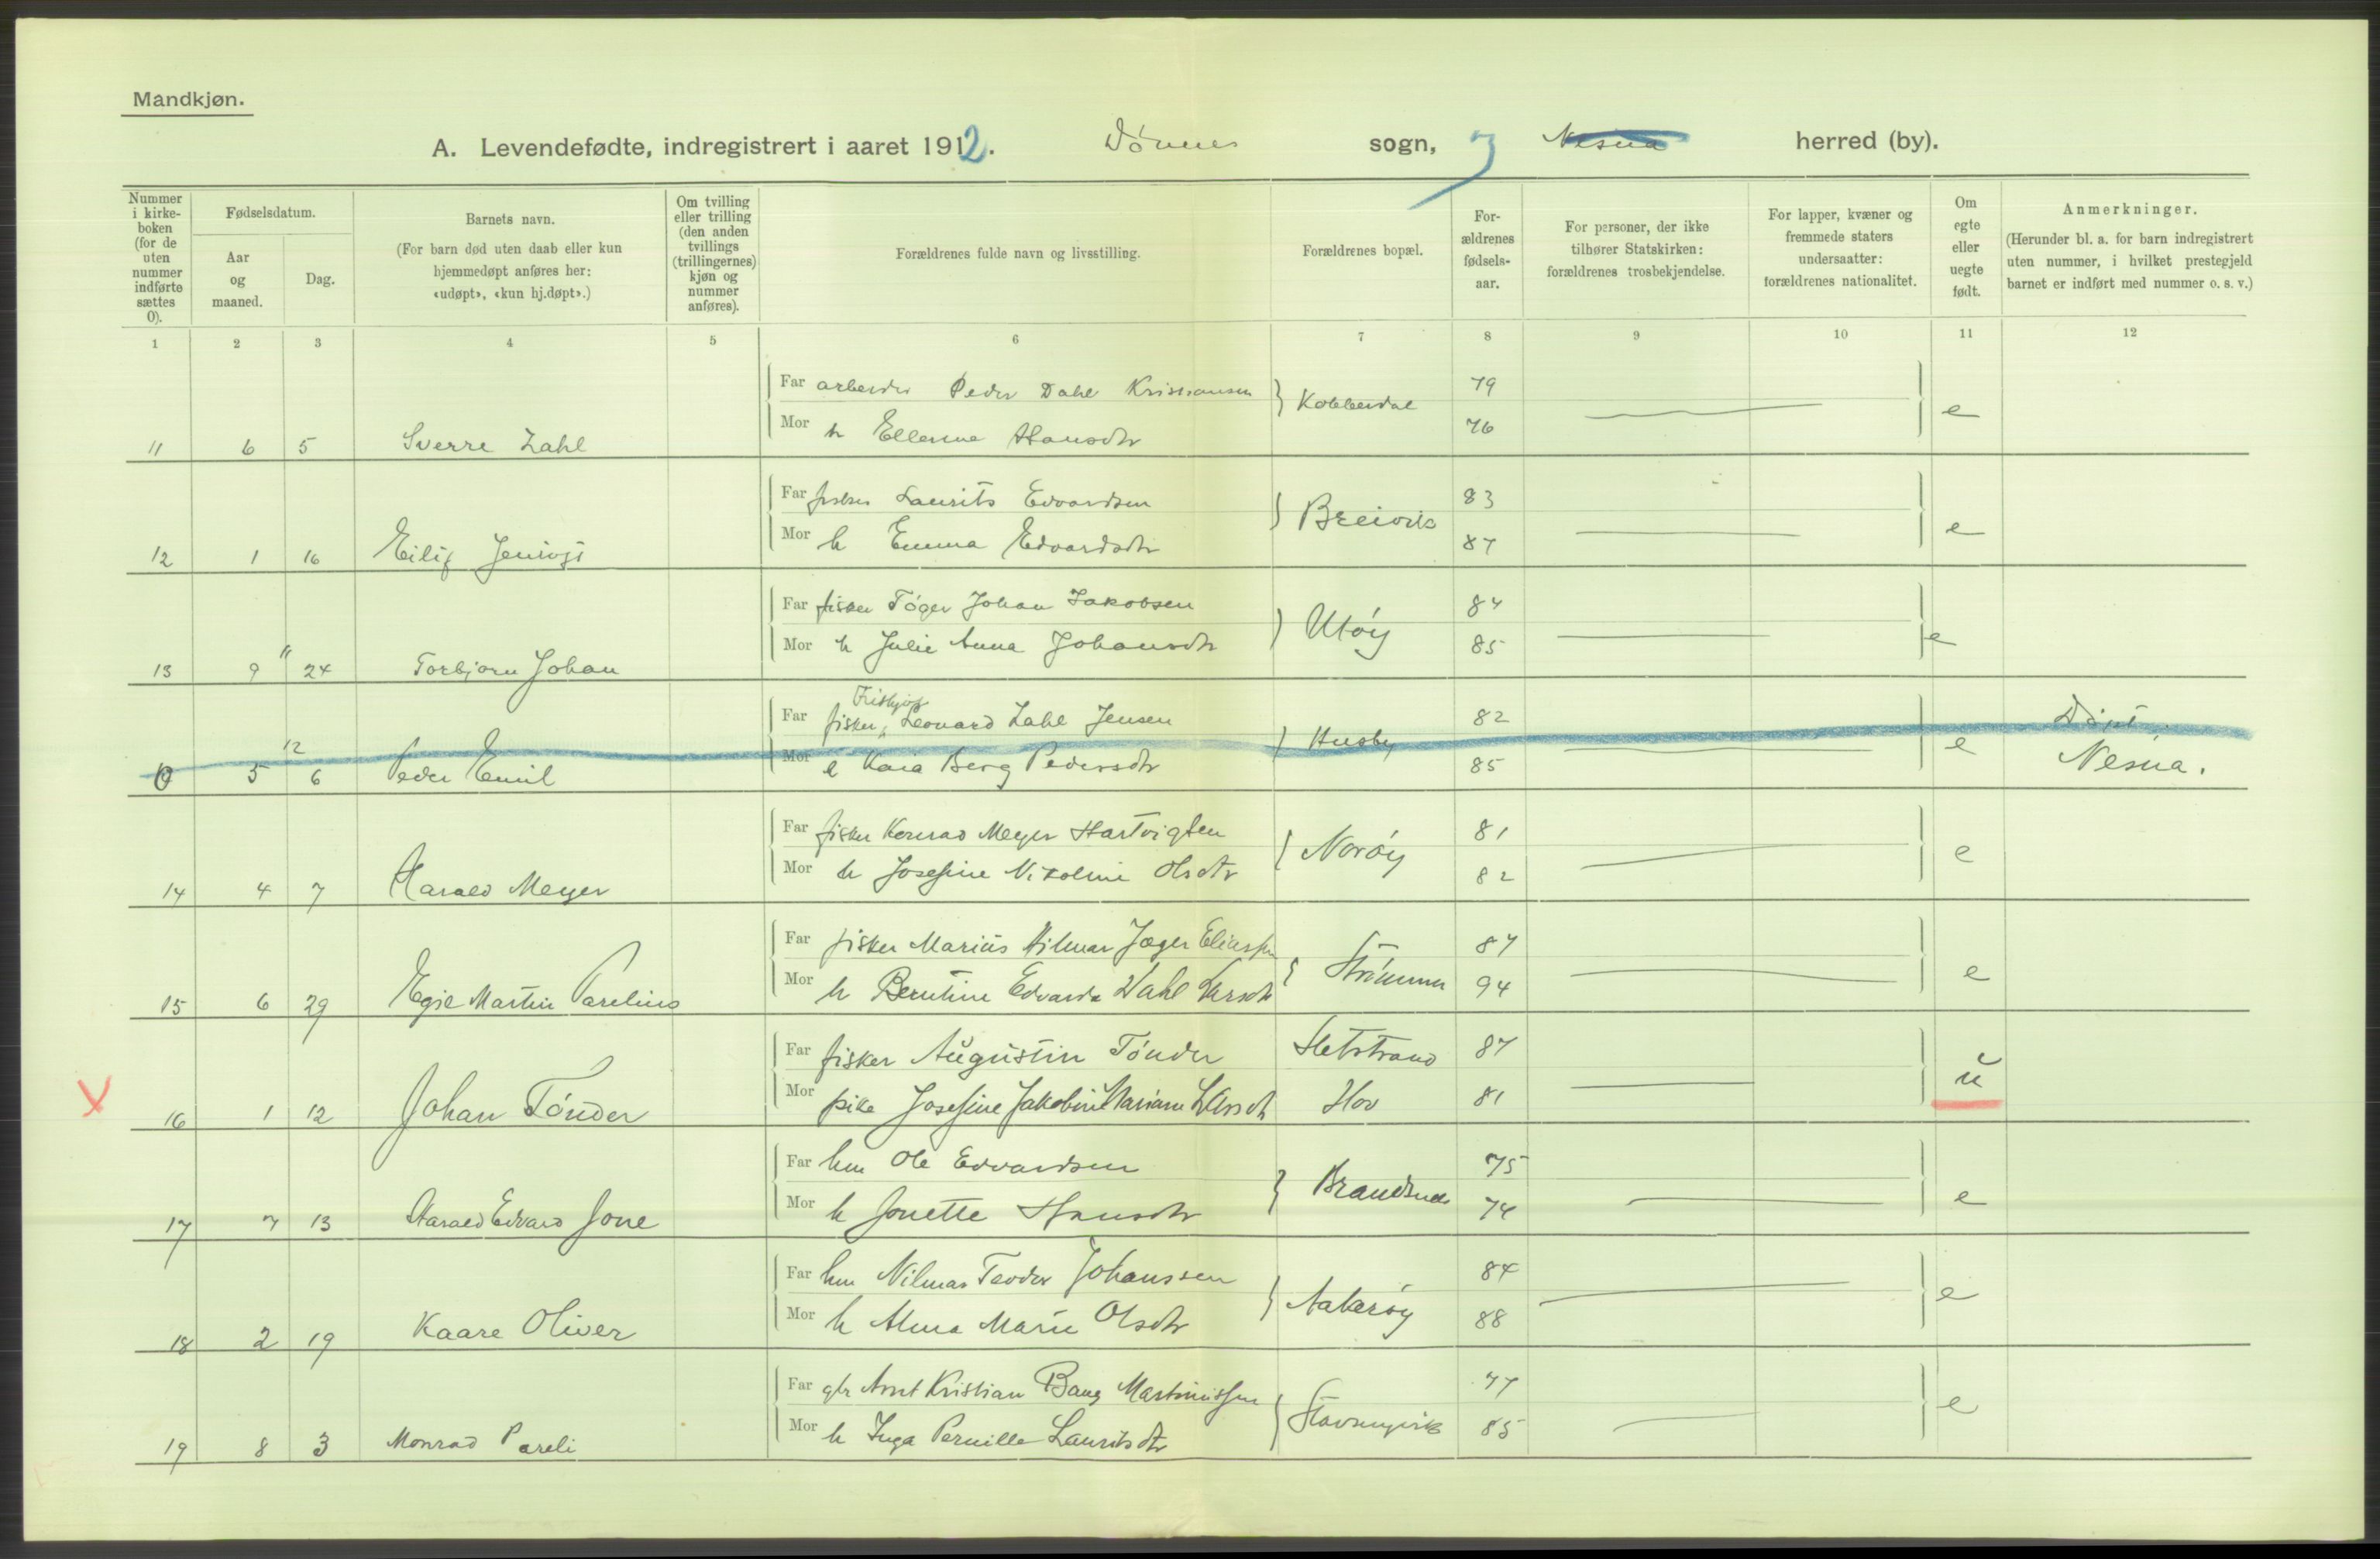 Mandkjøn.
A. Levendefødte, indregistrert i aaret 1912. Dönnes sogn, Nesna herred (by).
Nummer i kirke-boken (for de uten nummer indførte sættes 0).
Fødselsdatum.
Aar og maaned.
Dag.
Barnets navn.
(For barn død uten daab eller kun hjemmedøpt anføres her: «udøpt», «kun hj.døpt».)
Om tvilling eller trilling (den anden tvillings (trillingernes) kjøn og nummer anføres).
Forældrenes fulde navn og livsstilling.
Forældrenes bopæl.
For-ældrenes fødsels-aar.
For personer, der ikke tilhører Statskirken: forældrenes trosbekjendelse.
For lapper, kvæner og fremmede staters undersaatter: forældrenes nationalitet.
Om egte eller uegte født.
Anmerkninger.
(Herunder bl. a. for barn indregistrert uten nummer, i hvilket prestegjeld barnet er indført med nummer o. s. v.)
1 2 3 4 5 6 7 8 9 10 11 12
Far arbeider Peder Dahl Kristiansen Kobberdal 79
Mor h Ellerine Hansdtr 76 e
11 6 5 Sverre Zahl
Far fisker Laurits Edvardsen Breivik 83
Mor h Emma Edvardsdtr 87 e
12 1 16 Eilif
Far fisker Töger Johan Jakobsen Utöy 84
Mor h Julie Anna Johansdtr 85 e
13 9 11 24 Torbjorn Johan
Frithjof
Far fisker, Leonard Zahl Jensen Husby 82 Döpt
Mor e Kaia Berg Pedersdtr 85 e Nesna.
0 5 12 6 Peder Emil
Far fisker Konrad Meyer Hartvigsen Noröy 81
Mor h Josefine Nikoline Olsdtr 82 e
14 4 7 Harald Meyer
Far fisker Marius Hilmar Jæger Eliassen 87
Mor h Berntine Edvarda Dahl Larsdtr 94 e
15 6 29 Egil Martin Parelius
Far fisker Augustin Tönder Sletstrand 87
Mor pike Josefine Jakobine Mariane Larsdtr Hov 81 u
x 16 1 12 Johan Tönder
Far hm Ole Edvardsen 75
Mor h Jonette Hansdtr 74 e
17 7 13 Harald Edvard Jone
Far hm Hilmar Teodor Johanssen Aakeröy 84
Mor h Alma Marie Olsdtr 88 e
18 2 19 Kaare Oliver
Far gbr Arnt Kristian Bang Martinussen 77
Mor h Inga Pernille Lauritsdtr 85 e
19 8 3 Monrad Pareli